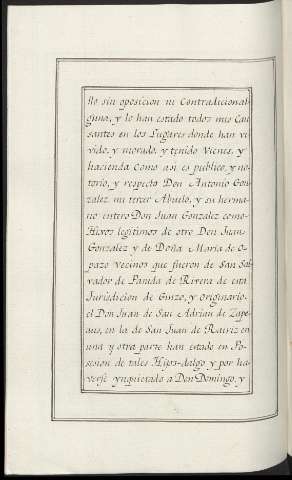 do sin oposicion ni Contradicional-
guna, y lo han estado todos mis Cau-
santes en los Lugares donde han vi-
vido, y morado, y tenido Vienes, y
hacienda Como asi es publico, y no-
torio, y respecto Don Antonio Gon-
zalez mi tercer Abuelo, y su herma-
no entero Don Juan Gonzalez como
Hixos legitimos de otro Don Juan
Gonzalez y de Doña Maria de O-
pazo Vecinos que fueron de San Sal-
vador de Parada de Rivera de esta
Jurisdicion de Ginzo, y Originario
el Don Juan de San Adrian de Zape-
aus, en la de San Juan de Rairiz en
una y otra parte han estado en Po-
sesion de tales Hijos-dalgo, y por ha-
verse ynquietado a Don Domingo, y